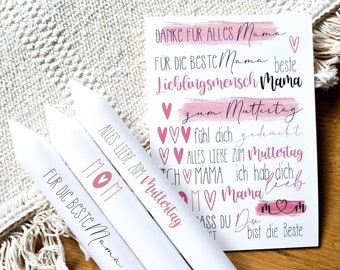 DANKE FÜR ALLES Mama
FÜR DIE BESTE Mama beste
Lieblingsmensch Mama
zum Muttertag
fühl dich gedrückt
ALLES LIEBE ZUM Muttertag
ICH MAMA ich hab dich lieb
M M Mama M M
DASS DU Du
bist die Beste
FÜR DIE BESTE Mama
M M
ALLES LIEBE ZUM Muttertag